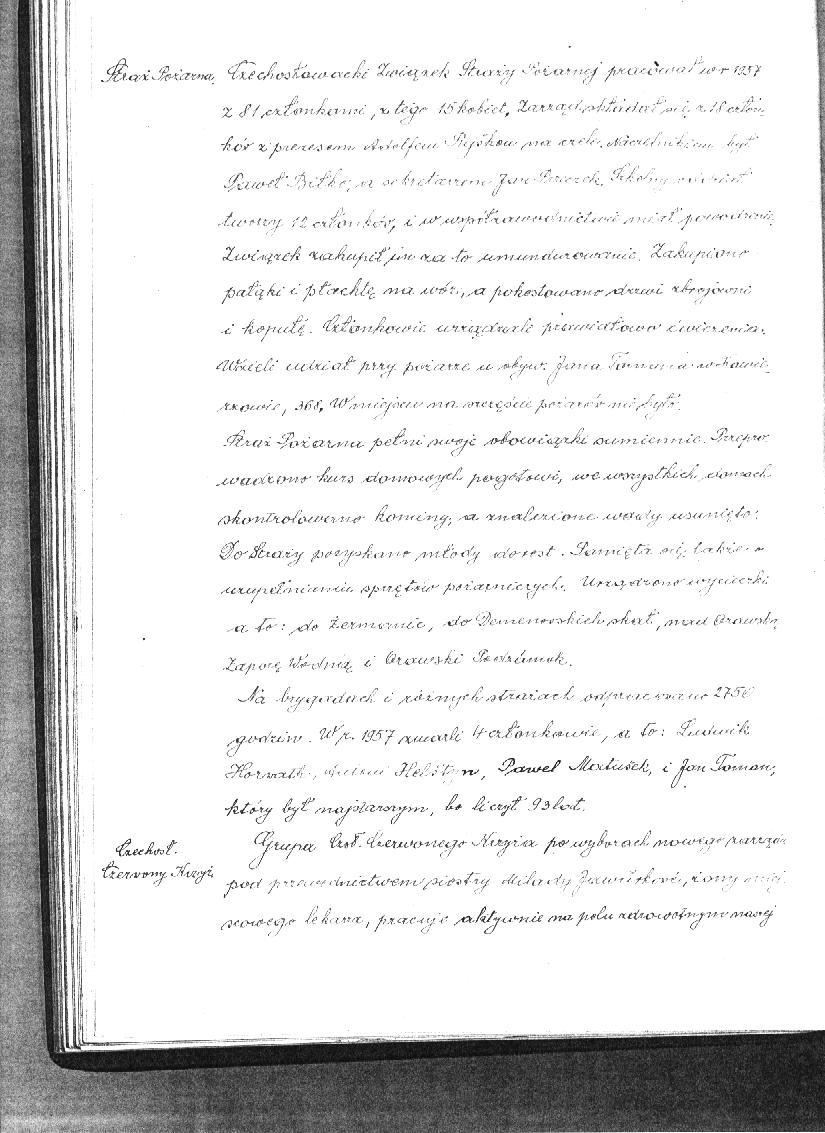 Straż Pożarna, Czechosłowacki Związek Straży Pożarnej pracował w r 1957
z 81 członkami, z tego 15 kobiet. Zarząd składał się z 18 człon-
ków z prezesem Adolfem Ryškou na czele. Naczelnikiem był
Paweł Bilko, a sekretarzem Jan. Szkolny
tworzy 12 członków, i w współzawodnictwie miał powodzenie.
Związek zakupił im za to umundurowanie. Zakupiono
pałąki i płachtę na wóz, a pokostowano drzwi zbrojowni
i kopułę. Członkowie urządzali prawidłowo ćwiczenia.
Wzieli udział przy pożarze u obyw. Jana Tomana w
368. W miejscu na szczęście pożarów nie było.
Straż Pożarna pełni swoje obowiązki sumiennie. Przepro-
wadzono kurs domowych pogotowi, we wszystkich domach
skontrolowano kominy, a znalezione wady usunięto.
Do Straży pozyskano młody dorost. Pamięta się także o
uzupełnianiu sprzętów pożarniczych. Urządzono wycieczki
a to: do Żermanic, do Demenovskich skał, nad Orawską
Zaporę Wodną i Orawski Podzámok.
Na brygadach i różnych strażach odpracowano 2750
godzin. W r. 1957 zmarli 4 członkowie, a to: Ludwik
Horwath, Antoni Helštyn, Paweł Matušek, i Jan Toman,
który był najstarszym, bo liczył 93 lat.
Czechosł.
Czerwony Krzyż,
Grupa Czsł. Czerwonego Krzyża po wyborach nowego zarządu
pod przewodnictwem siostry Milady, żony miej-
scowego lekarza, pracuje aktywnie na polu zdrowotnym naszej